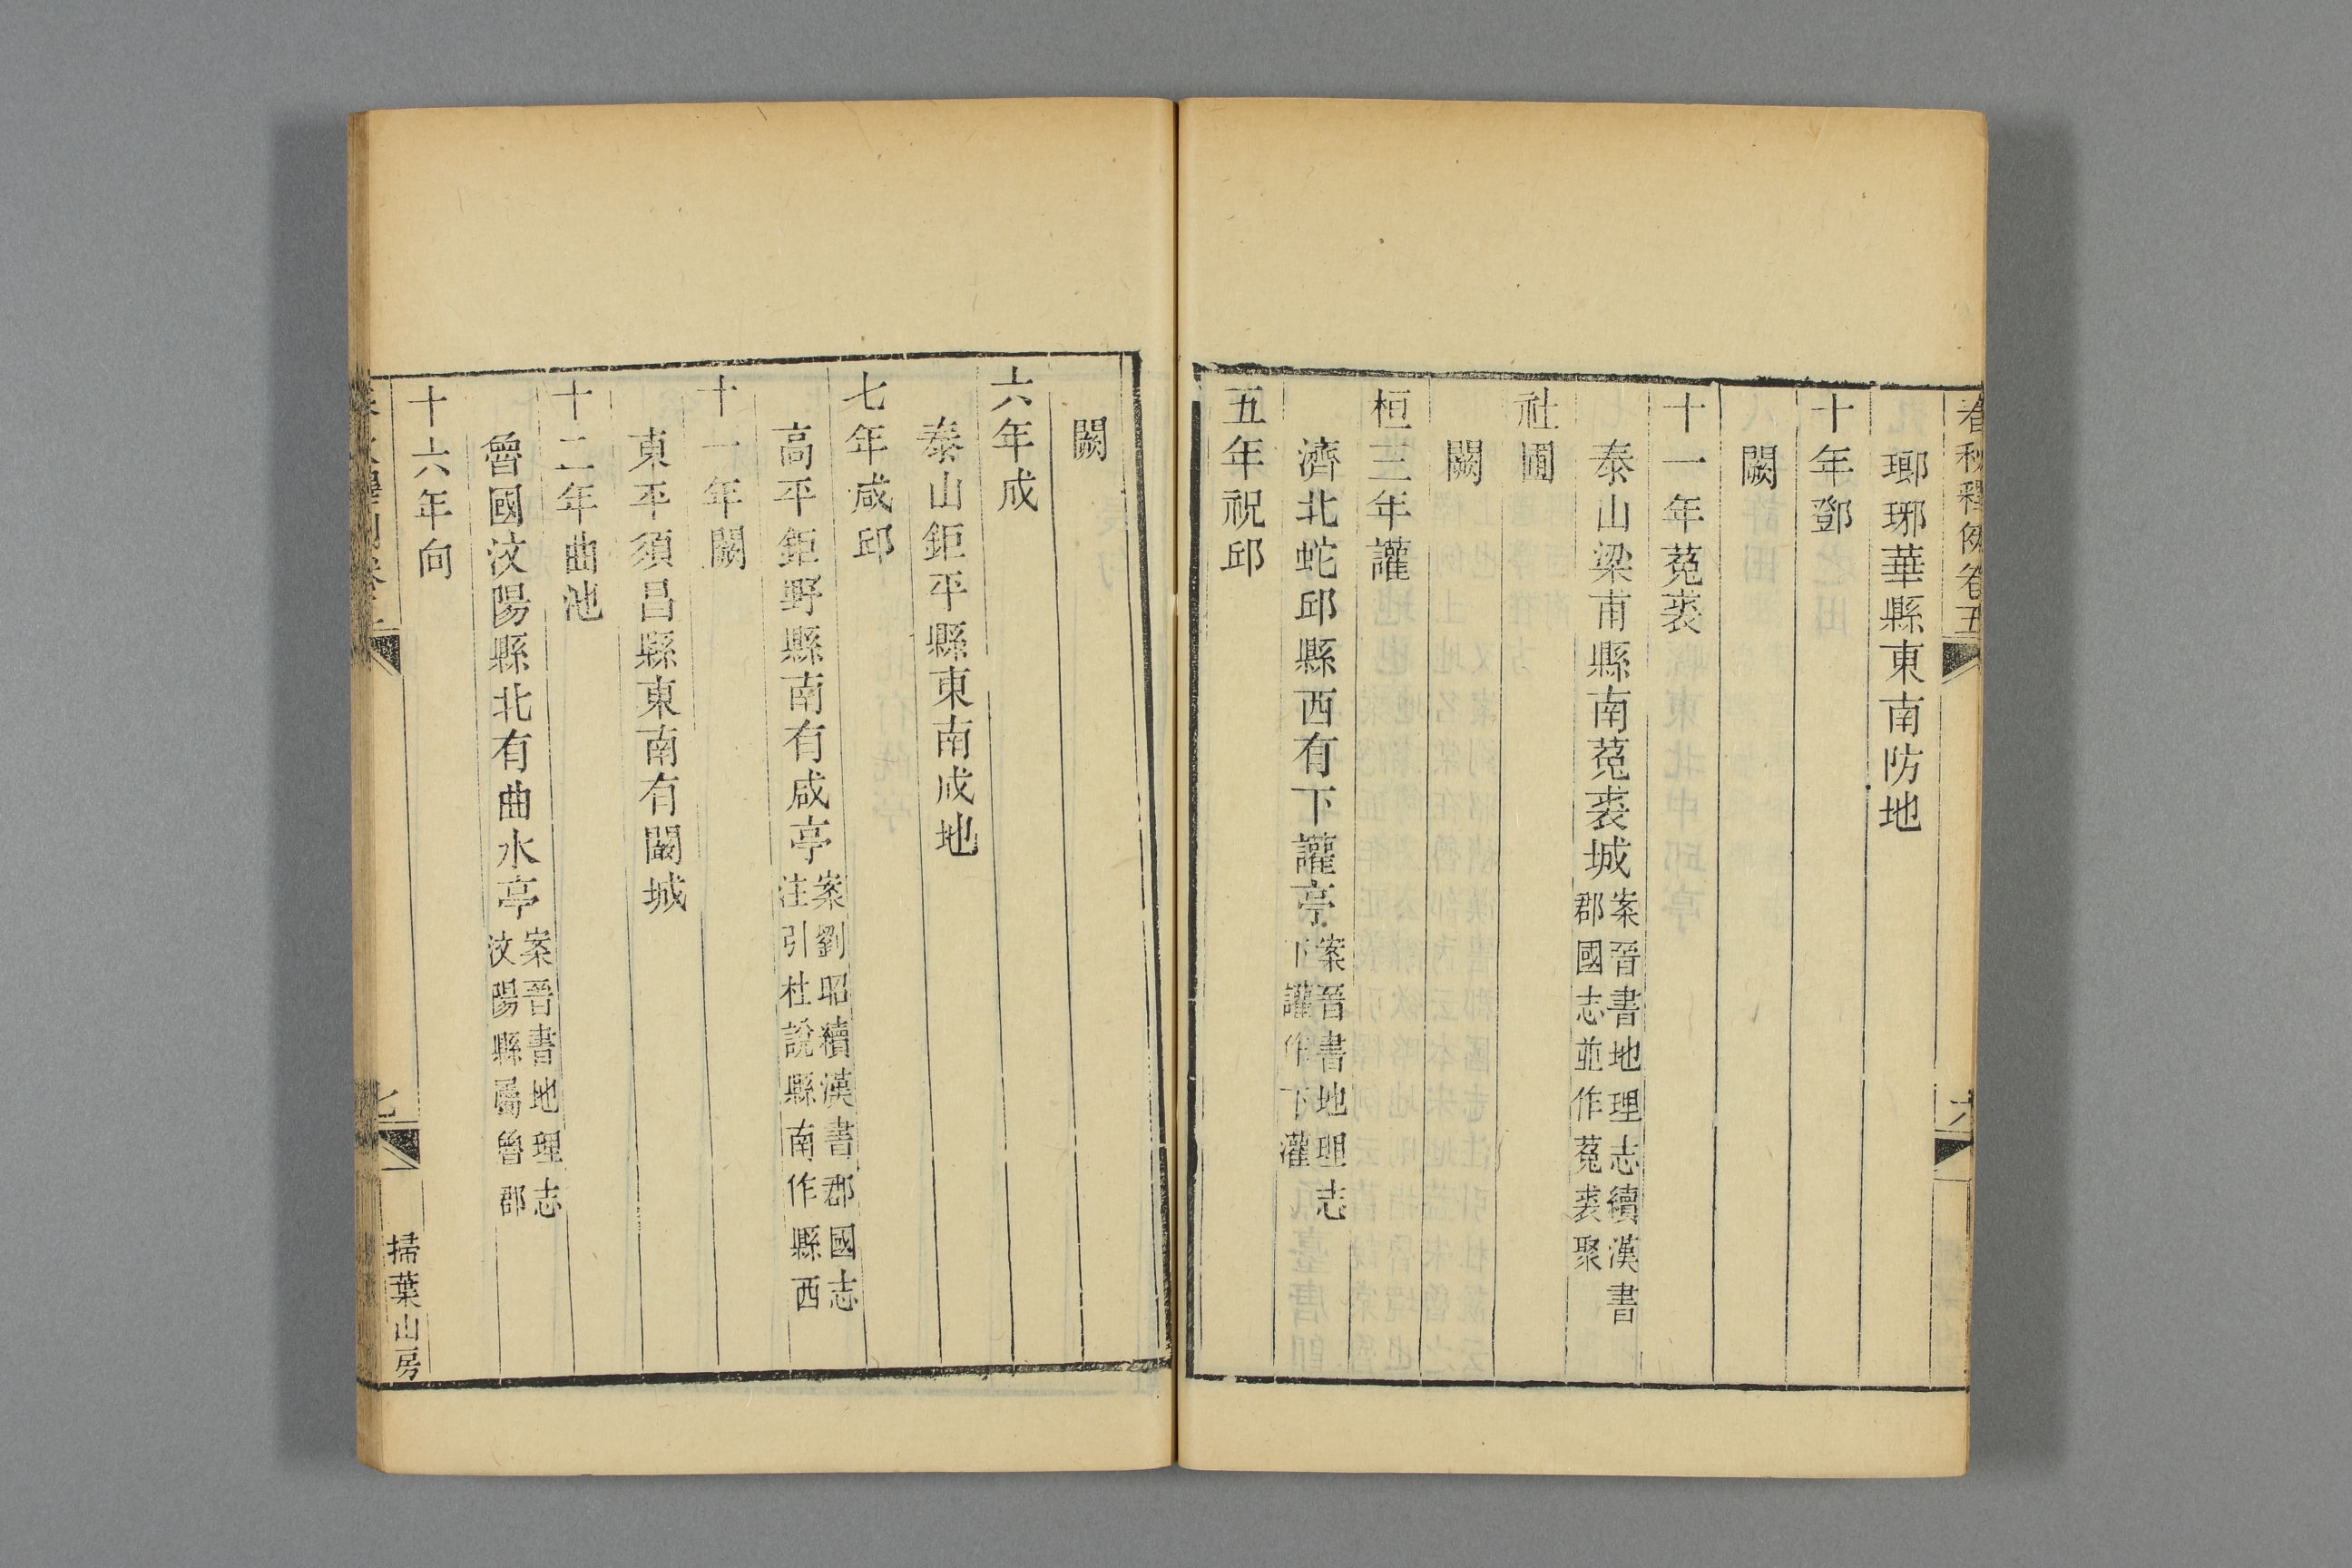 春秋釋例卷五
六
瑯琊華縣東南防地
十年鄧
闕
十一年菟裘
泰山梁甫縣南菟裘城案晉書地理志續漢書
郡國志並作菟裘聚
社圃
闕
桓三年讙
濟北蛇邱縣西有下讙亭案晉書地理志
下讙作下灌
五年祝邱
闕
六年成
泰山鉅平縣東南成地
七年咸邱
高平鉅野縣南有咸亭案劉昭續漢書郡國志
注引杜說縣南作縣西
十一年闞
東平須昌縣東南有闞城
十二年曲池
魯國汶陽縣北有曲水亭案晉書地理志
汶陽縣屬魯郡
十六年向
七
掃葉山房